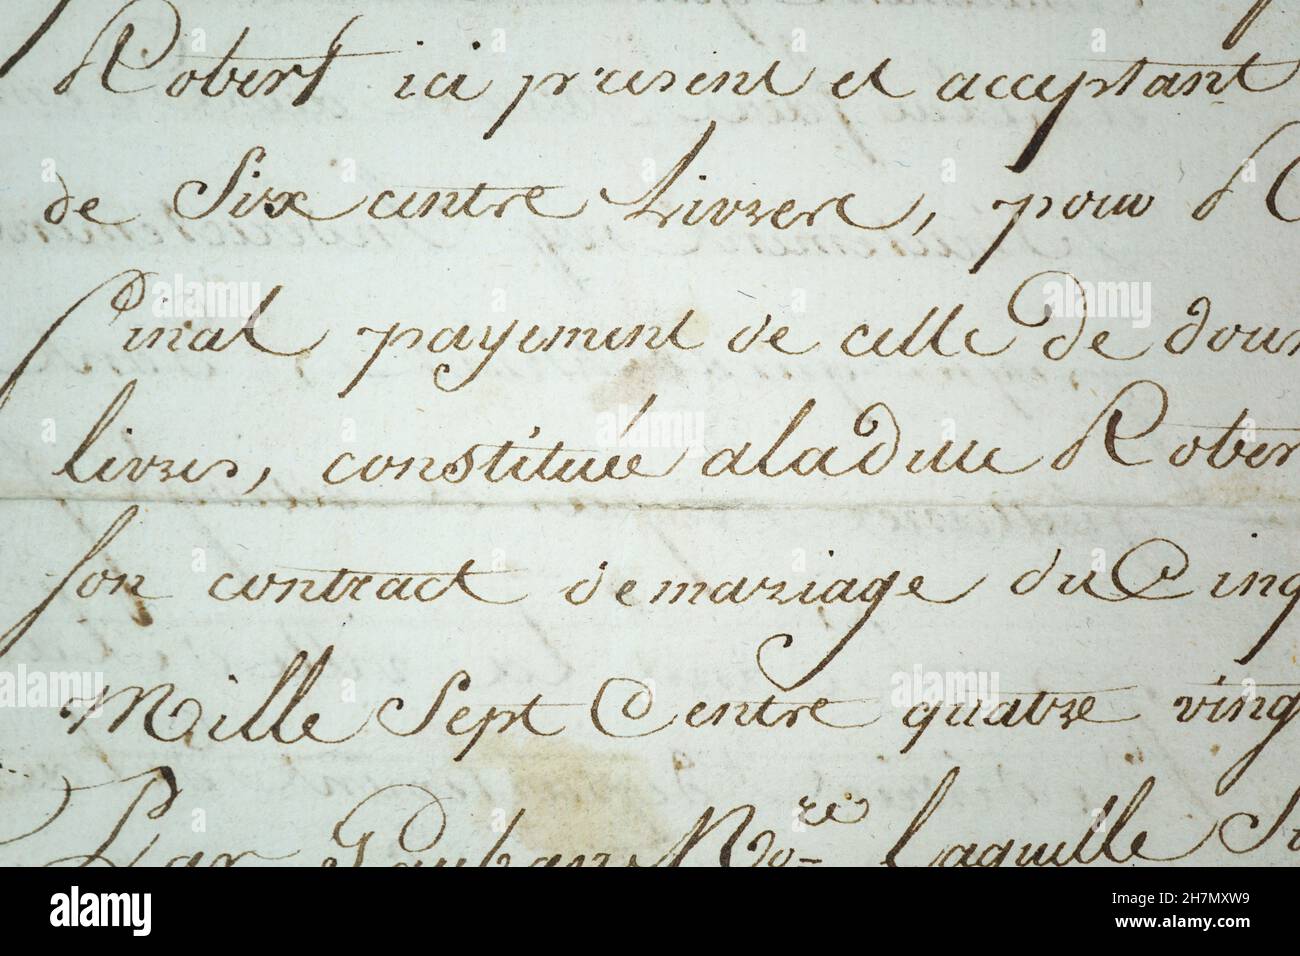 Robert ici present et acceptant
de Six centre Livrere, pour
Final payement de celle de
livres, constituée aladille Rober
son contract demariage du Cinq
Mille Sept Centre quatre ving
Par No.re laquelle
alamy
Image ID: 2H7MXW9
www.alamy.com